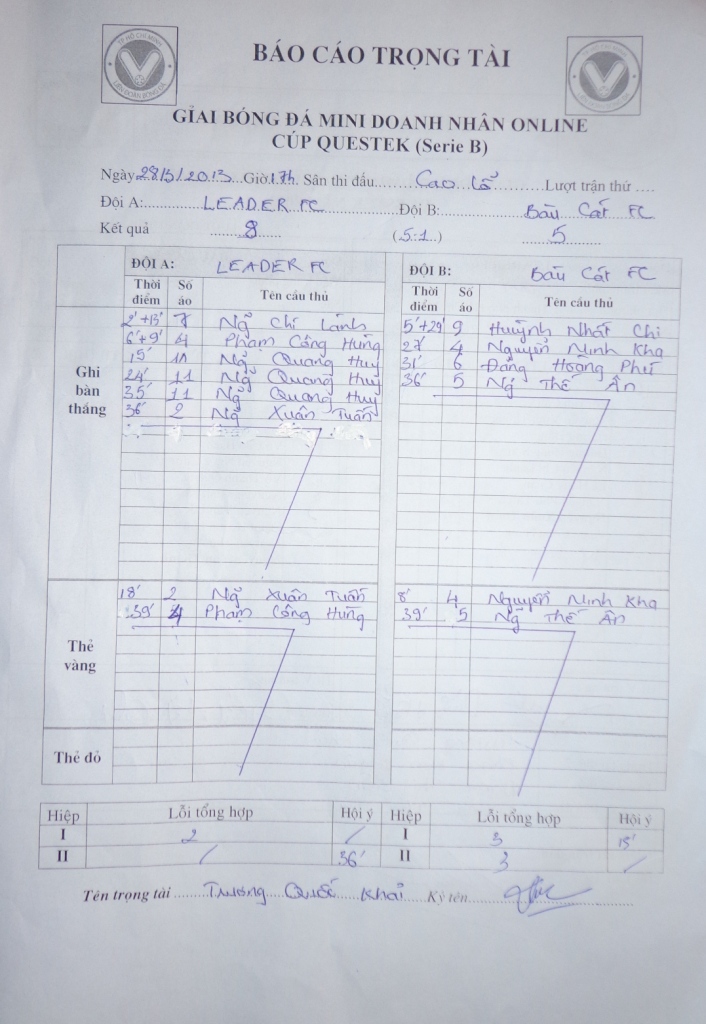 TP HỒ CHÍ MINH
LIÊN ĐOÀN BÓNG ĐÁ
BÁO CÁO TRỌNG TÀI
GIẢI BÓNG ĐÁ MINI DOANH NHÂN ONLINE
CÚP QUESTEK (Serie B)
Ngày 28/5/2013 Giờ 17h. Sân thi đấu........ Cao Lỗ ............Lượt trận thứ ....
Đội A: LEADER FC Đội B: Bàu Cát FC
Kết quả 8 (5:1) 5
ĐỘI A: LEADER FC ĐỘI B: Bàu Cát FC
Thời điểm Số áo Tên cầu thủ Thời điểm Số áo Tên cầu thủ
Ghi bàn thắng
2'+13' 7 Ng̃ Chí Lành 5'+29' 9 Huỳnh Nhất Chi
6'+9' 4 Phạm Công Hùng 27' 4 Nguyễn Minh Kha
15' 11 Ng̃ Quang Huy 31' 6 Đặng Hoàng Phi
24' 11 Ng̃ Quang Huy 36' 5 Ng̃ Thế Ân
35' 11 Ng̃ Quang Huy
36' 2 Ng̃ Xuân Tuấn
Thẻ vàng
18' 2 Ng̃ Xuân Tuấn 8' 4 Nguyễn Minh Kha
39' 4 Phạm Công Hùng 39' 5 Ng̃ Thế Ân
Thẻ đỏ
Hiệp Lỗi tổng hợp Hội ý Hiệp Lỗi tổng hợp Hội ý
I 2 / I 3 15'
II / 36' II 3 /
Tên trọng tài Trương Quốc Khải Ký tên